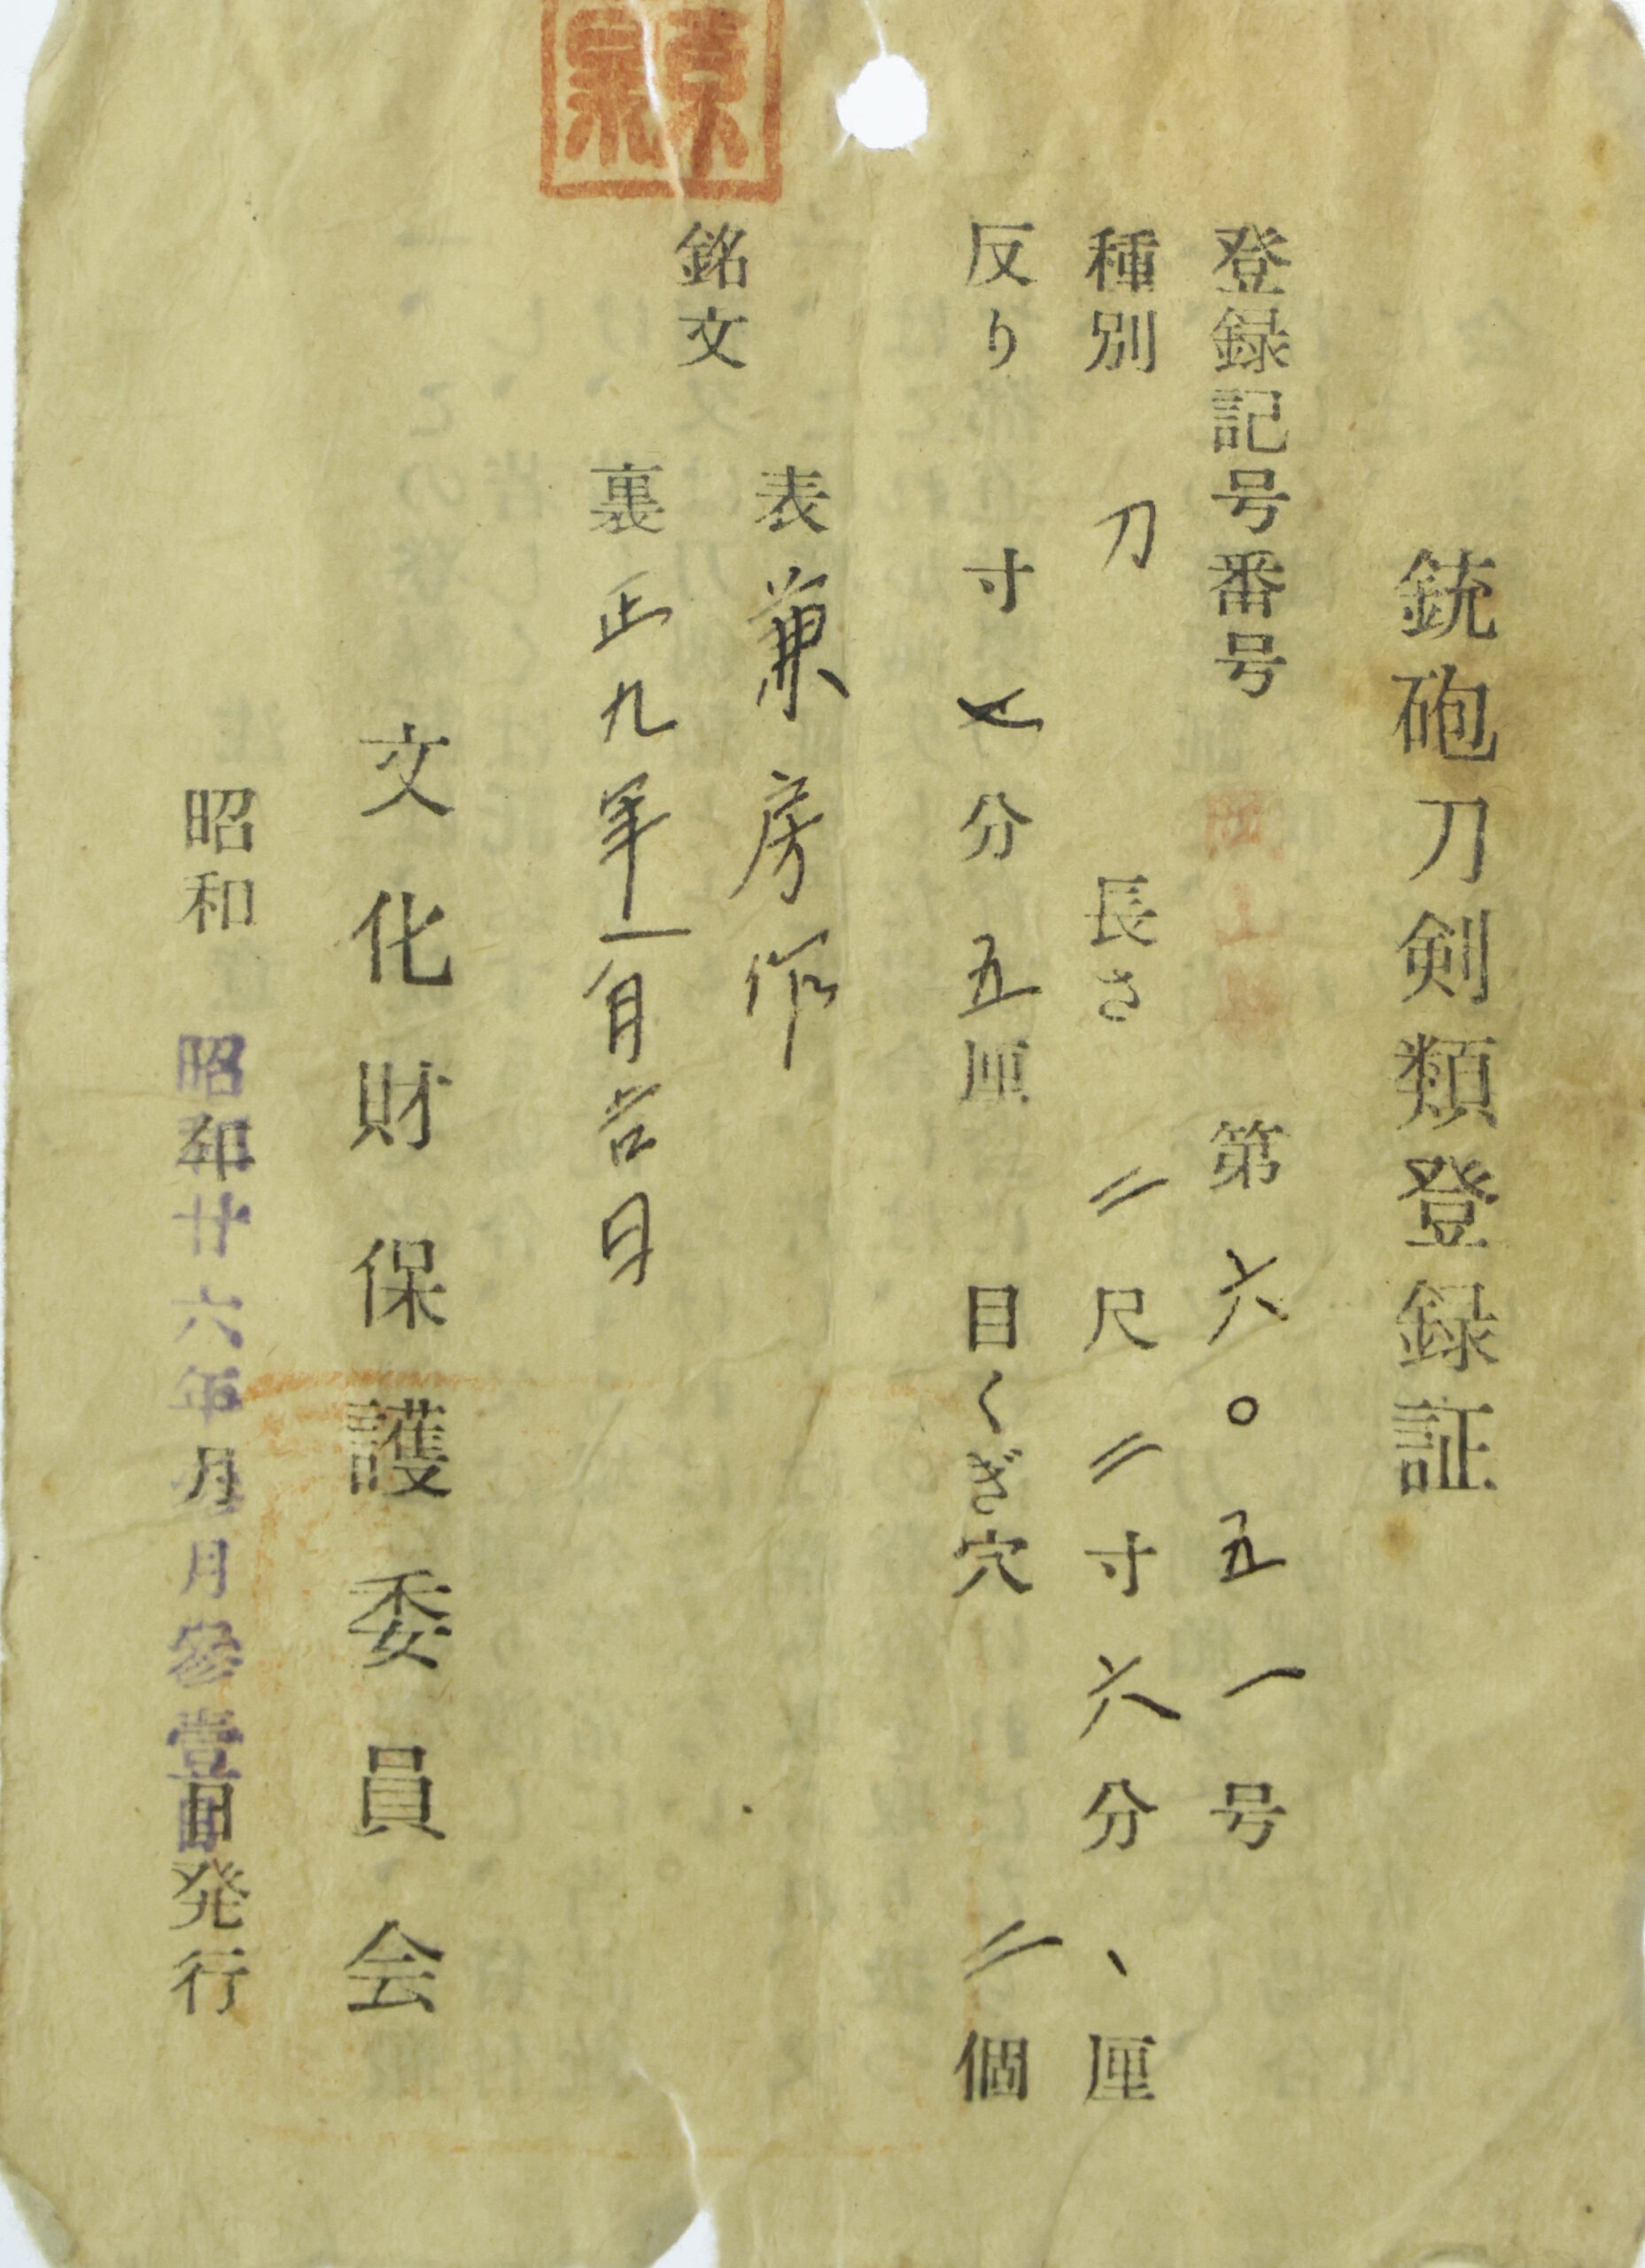 銃砲刀剣類登録証
登録記号番号 岡山県 第六〇五一号
種別 刀 長さ 二尺二寸六分、厘
反り 寸七分五厘 目くぎ穴 二個
銘文
表 兼房作
裏 正九年一月吉日
文化財保護委員会
昭和 昭和廿六年 月参壹日発行